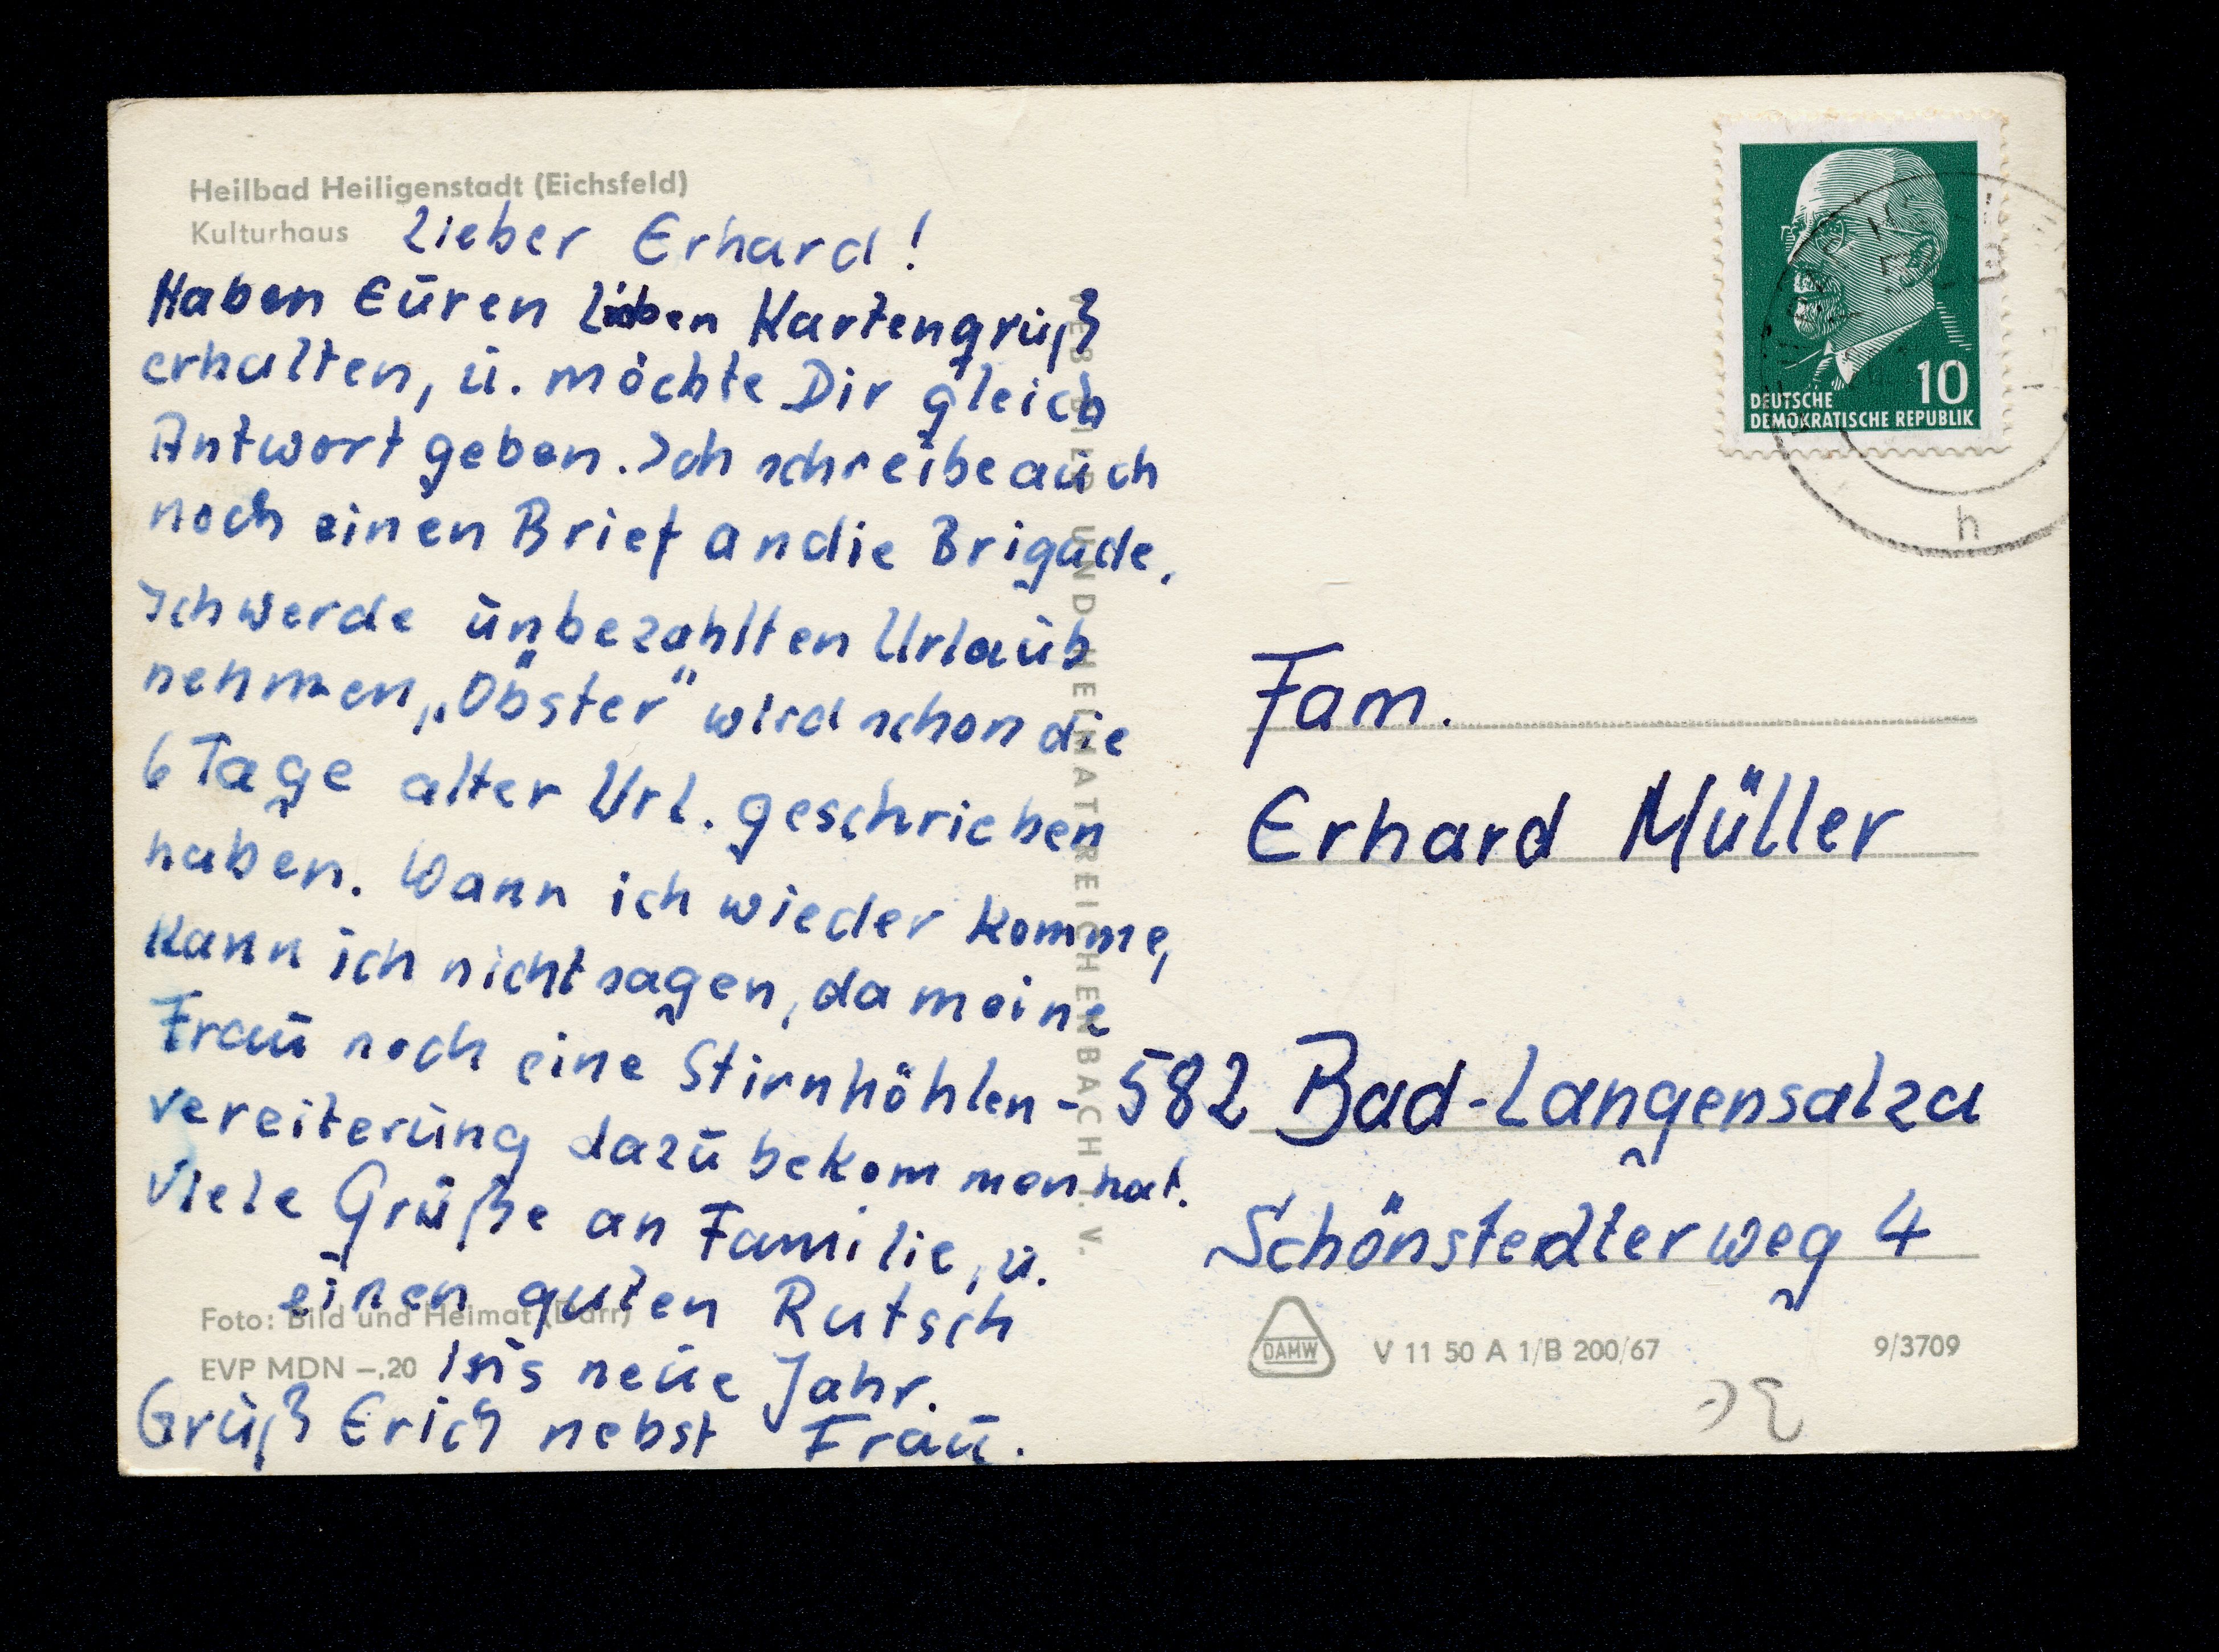 Heilbad Heiligenstadt (Eichsfeld)
Kulturhaus
Lieber Erhard!
Haben Euren lieben Kartengruß
erhalten, u. möchte Dir gleich
Antwort geben. Ich schreibe auch
noch einen Brief an die Brigade.
Ich werde unbezahlten Urlaub
nehmen, „Obster" wird schon die
6 Tage alter Url. geschrieben
haben. Wann ich wieder komme,
kann ich nicht sagen, da meine
Frau noch eine Stirnhöhlen-
vereiterung dazu bekommen hat.
Viele Grüße an Familie, u.
einen guten Rutsch
ins neue Jahr.
Gruß Erich nebst Frau.
Foto: Bild und Heimat (Darr)
EVP MDN –,20
VEB BILD UND HEIMAT REICHENBACH I. V.
DEUTSCHE
DEMOKRATISCHE REPUBLIK
10
h
Fam.
Erhard Müller
582 Bad-Langensalza
Schönstedterweg 4
DAMW
V 11 50 A 1/B 200/67
9/3709